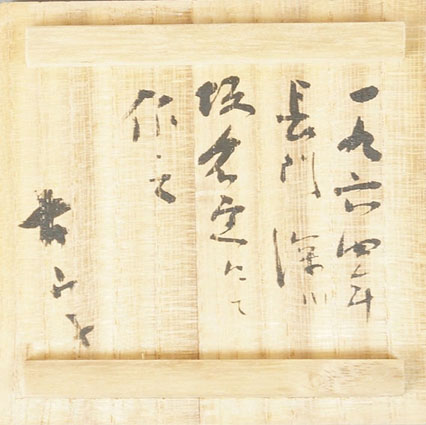 一九六四年
長門深川
坂倉窯にて
作之